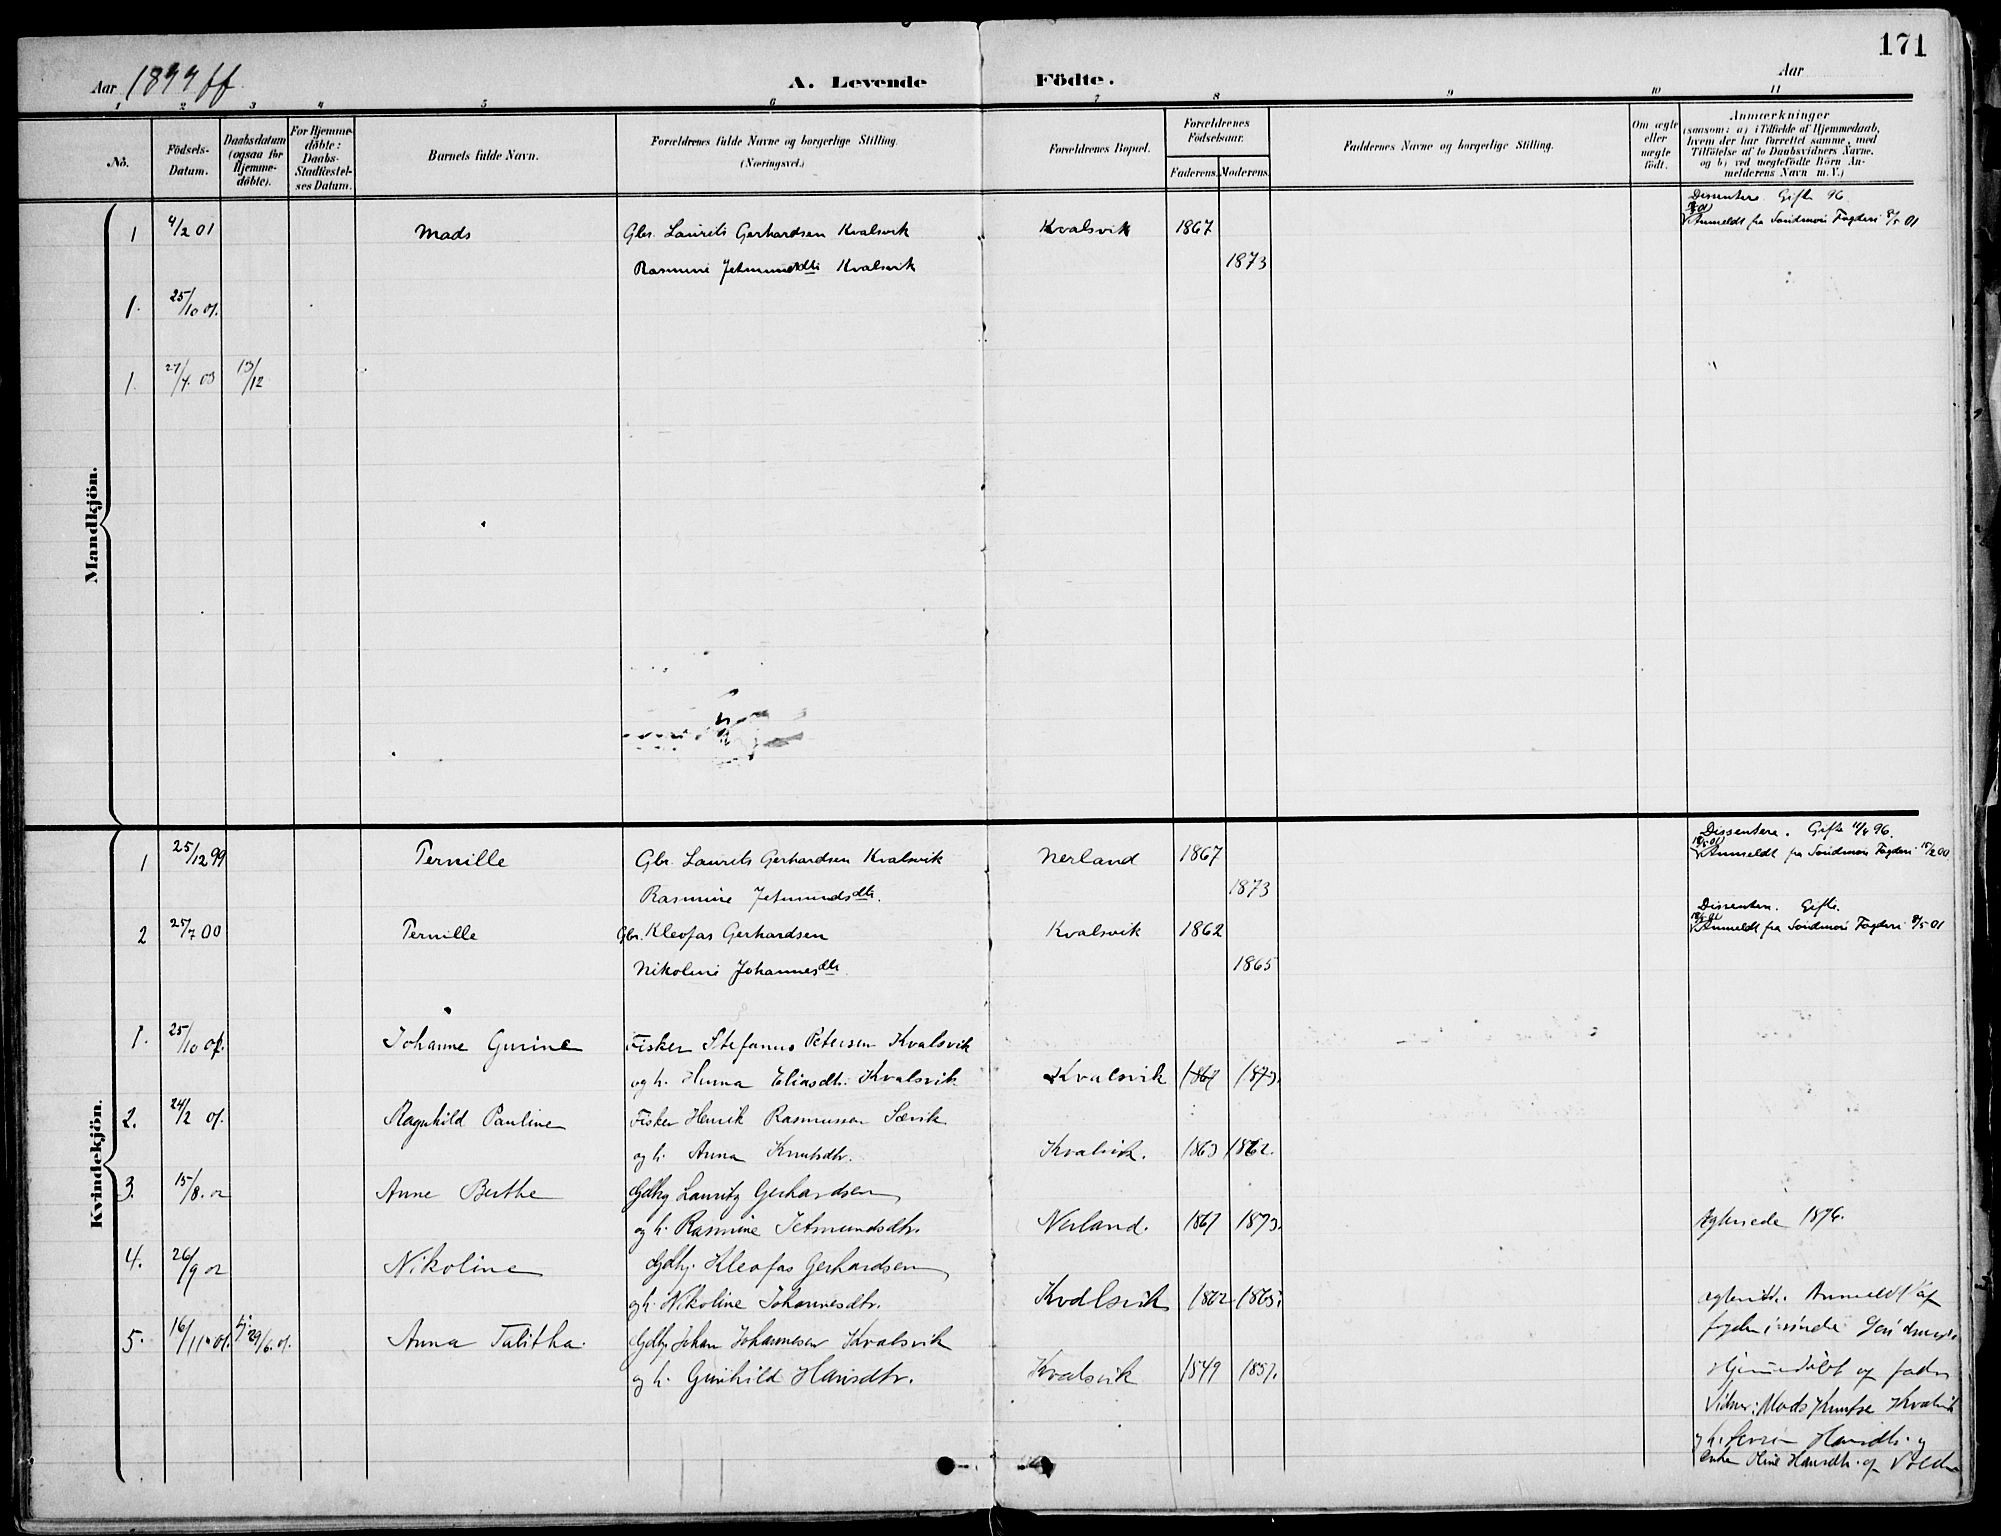 171
Aar 1899 ff. A. Levende Födte. Aar
1 2 3 4 5 6 7 8 9 10 11
No. Födsels-Datum. Daabsdatum (ogsaa for Hjemme-döbte). For Hjemme-döbte: Daabs-Stadfestel-ses Datum. Barnets fulde Navn. Forældrenes fulde Navne og borgerlige Stilling. (Næringsvei.) Forældrenes Bopæl. Forældrenes Födselsaar. Faderens. Moderens. Faddernes Navne og borgerlige Stilling. Om ægte eller uægte födt. Anmærkninger (saasom: a) i Tilfælde af Hjemmedaab, hvem der har forrettet samme, med Tilföielse af to Daabsvidners Navne, og b) ved uægtefödte Börn Anmelderens Navn m. V.)
Mandkjön.
Dissentere. Gifte 96.
1 4/2 01 Mads Gbr. Laurits Gerhardsen Kvalsvik Kvalsvik 1867 Anmeldt fra Söndmör Fogderi 8/5 01
Rasmine Jetmundsdtr Kvalsvik 1873
1. 25/10 01.
1. 27/7. 03 13/12
Kvindekjön.
Dissentere. Gifte 11/4 96.
1 25/12 99 Pernille Gbr. Laurits Gerhardsen Kvalsvik Nerland 1867 Anmeldt fra Söndmör Fogderi 15/2 00
Rasmine Jetmundsdtr. 1873
Dissentere. Gifte.
2 25/7 00 Pernille Gbr. Kleofas Gerhardsen Kvalsvik 1862 Anmeldt fra Söndmör Fogderi 8/5 01
Nikoline Johannesdtr. 1865
1. 25/10 01. Johanne Gurine Fisker Stefanus Petersen Kvalsvik
og h. Eliasdtr. Kvalsvik Kvalsvik 1867 1873.
2. 24/2 01. Ragnhild Pauline Fisker Henrik Rasmussen Sævik
og h. Anna Knutsdtr. Kvalsvik. 1863 1862.
3. 15/8. 02 Anne Berthe Gdbr Lauritz Gerhardsen
og h. Rasmine Jetmundsdtr. Nerland. 1867 1873. 1896.
4. 26/9 02 Nikoline Gdbr. Kleofas Gerhardsen
og h. Nikoline Johannesdtr. Kvalsvik 1862 1865. Anmeldt af
5. 16/11 01. 29/6. 01. Anna Talitha. Gdbr. Johan Johannesen Kvalsvik
og h. Gunhild Hansdtr. Kvalsvik 1849 1857. Hjemmedöbt af fader
Vidner: Mads Knutsen Kvalsvik
og h. Hansdtr. og
enke Oline Hansdtr. af